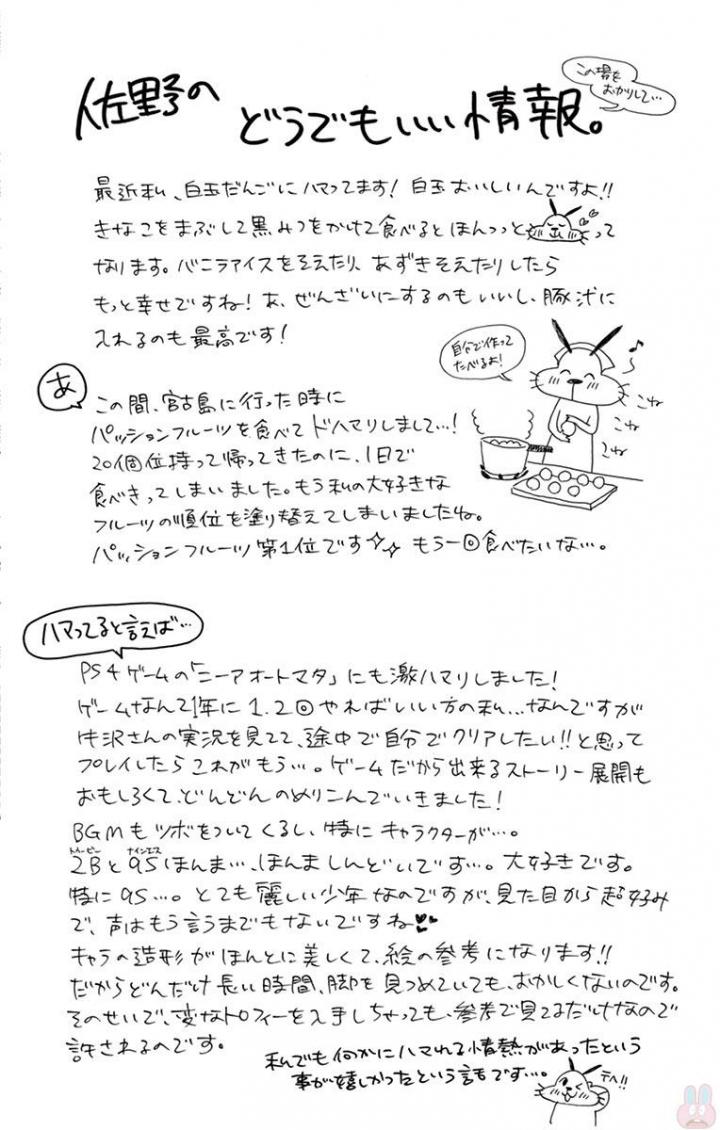 佐野の
どうでもいい情報。
この場を
おかりして…
最近私、白玉だんごにハマってます！白玉おいしいんですよ!!
きなこをまぶして黒みつをかけて食べるとほんっっと って
なります。バニラアイスをそえたり、あずきそえたりしたら
もっと幸せですね！あ、ぜんざいにするのもいいし、豚汁に
入れるのも最高です！
自分で作って
たべるよ！
こね
こね
こね
あ
この間、宮古島に行った時に
パッションフルーツを食べてドハマリしまして…！
20個位持って帰ってきたのに、1日で
食べきってしまいました。もう私の大好きな
フルーツの順位を塗り替えてしまいましたね。
パッションフルーツ第1位です☆☆ もう一回食べたいな…。
ハマってると言えば…
PS4ゲームの「ニーアオートマタ」にも激ハマリしました！
ゲームなんて1年に1.2回やればいい方の私…なんですが
牛沢さんの実況を見てて、途中で自分でクリアしたい!!と思って
プレイしたらこれがもう…。ゲームだから出来るストーリー展開も
おもしろくて、どんどんのめりこんでいきました！
BGMもツボをついてくるし、特にキャラクターが…。
トゥービー ナインエス
2Bと9Sほんま…、ほんましんどいです…。大好きです。
特に9S…。とても麗しい少年なのですが、見た目から超好み
で、声はもう言うまでもないですね♥♥
キャラの造形がほんとに美しくて、絵の参考になります!!
だからどんだけ長い時間、脚を見つめていても、おかしくないのです。
そのせいで、変なトロフィーを入手しちゃっても、参考で見てるだけなので
許されるのです。
私でも何かにハマれる情熱があったという
事が嬉しかったという話です…。
テヘ!!